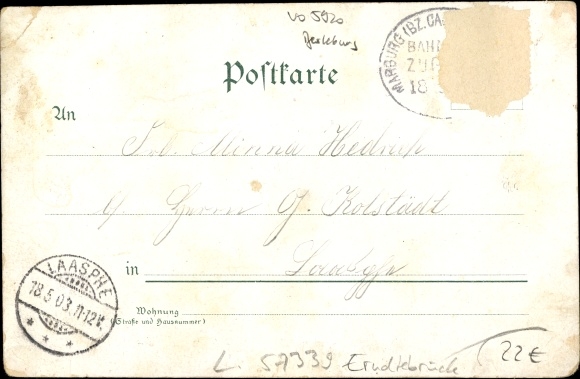 VD 5920
Berleburg
MARBURG (BZ. CA
BAHN
ZUG
18
Postkarte
An
Frl. Minna Hedrich
p. Herrn G. Kolstädt
in Laasphe
LAASPHE
18.5.03.11-12V.
* * *
Wohnung
(Straße und Hausnummer)
L. 57339 Erndtebrück
22€